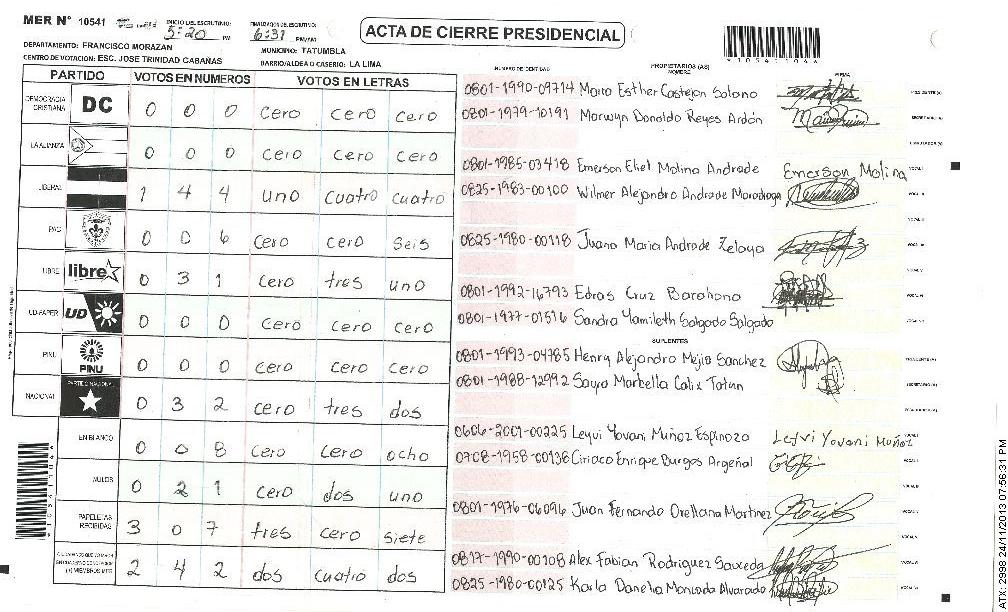 MER N° 10541
INICIO DEL ESCRUTINIO: 5:20 PM
FINALIZACION DEL ESCRUTINIO: 6:31 PM/AM
ACTA DE CIERRE PRESIDENCIAL
DEPARTAMENTO: FRANCISCO MORAZAN
MUNICIPIO: TATUMBLA
CENTRO DE VOTACION: ESC. JOSE TRINIDAD CABAÑAS
BARRIO/ALDEA O CASERIO: LA LIMA
PARTIDO VOTOS EN NUMEROS VOTOS EN LETRAS
DEMOCRACIA CRISTIANA DC 0 0 0 cero cero cero
LA ALIANZA 0 0 0 cero cero cero
LIBERAL 1 4 4 uno cuatro cuatro
PAC 0 0 6 cero cero seis
LIBRE libre 0 3 1 cero tres uno
UD-FAPER UD 0 0 0 cero cero cero
PINU PINU 0 0 0 cero cero cero
NACIONAL PARTIDO NACIONAL 0 3 2 cero tres dos
EN BLANCO 0 0 8 cero cero ocho
NULOS 0 2 1 cero dos uno
PAPELETAS RECIBIDAS 3 0 7 tres cero siete
2 4 2 dos cuatro dos
NUMERO DE IDENTIDAD PROPIETARIOS (AS) NOMBRE FIRMA
0801-1990-09714 Maria Esther Castejon Solano
0801-1979-10191 Marwyn Donaldo Reyes Ardón
0801-1985-03418 Emerson Eliel Molina Andrade Emerson Molina
0825-1983-00100 Wilmer Alejandro Andrade Maradiaga
0825-1980-00118 Juana Maria Andrade Zelaya
0801-1992-16793 Edras Cruz Barahona
0801-1977-01516 Sandra Yamileth Salgado Salgado
SUPLENTES
0801-1993-04785 Henry Alejandro Mejia Sanchez
0801-1988-12992 Sayra Marbella Calix Tatun
0606-2001-00225 Leyvi Yovani Muñoz Espinoza Leyvi Yovani Muñoz
0708-1958-00136 Ciriaco Enrique Burgos Argeñal
0801-1976-06096 Juan Fernando Orellana Martinez
0817-1990-00108 Alex Fabian Rodriguez Sauceda
0825-1980-00125 Karla Danelia Moncada Alvarado
ATX-2998 24/11/2013 07:56:31 PM